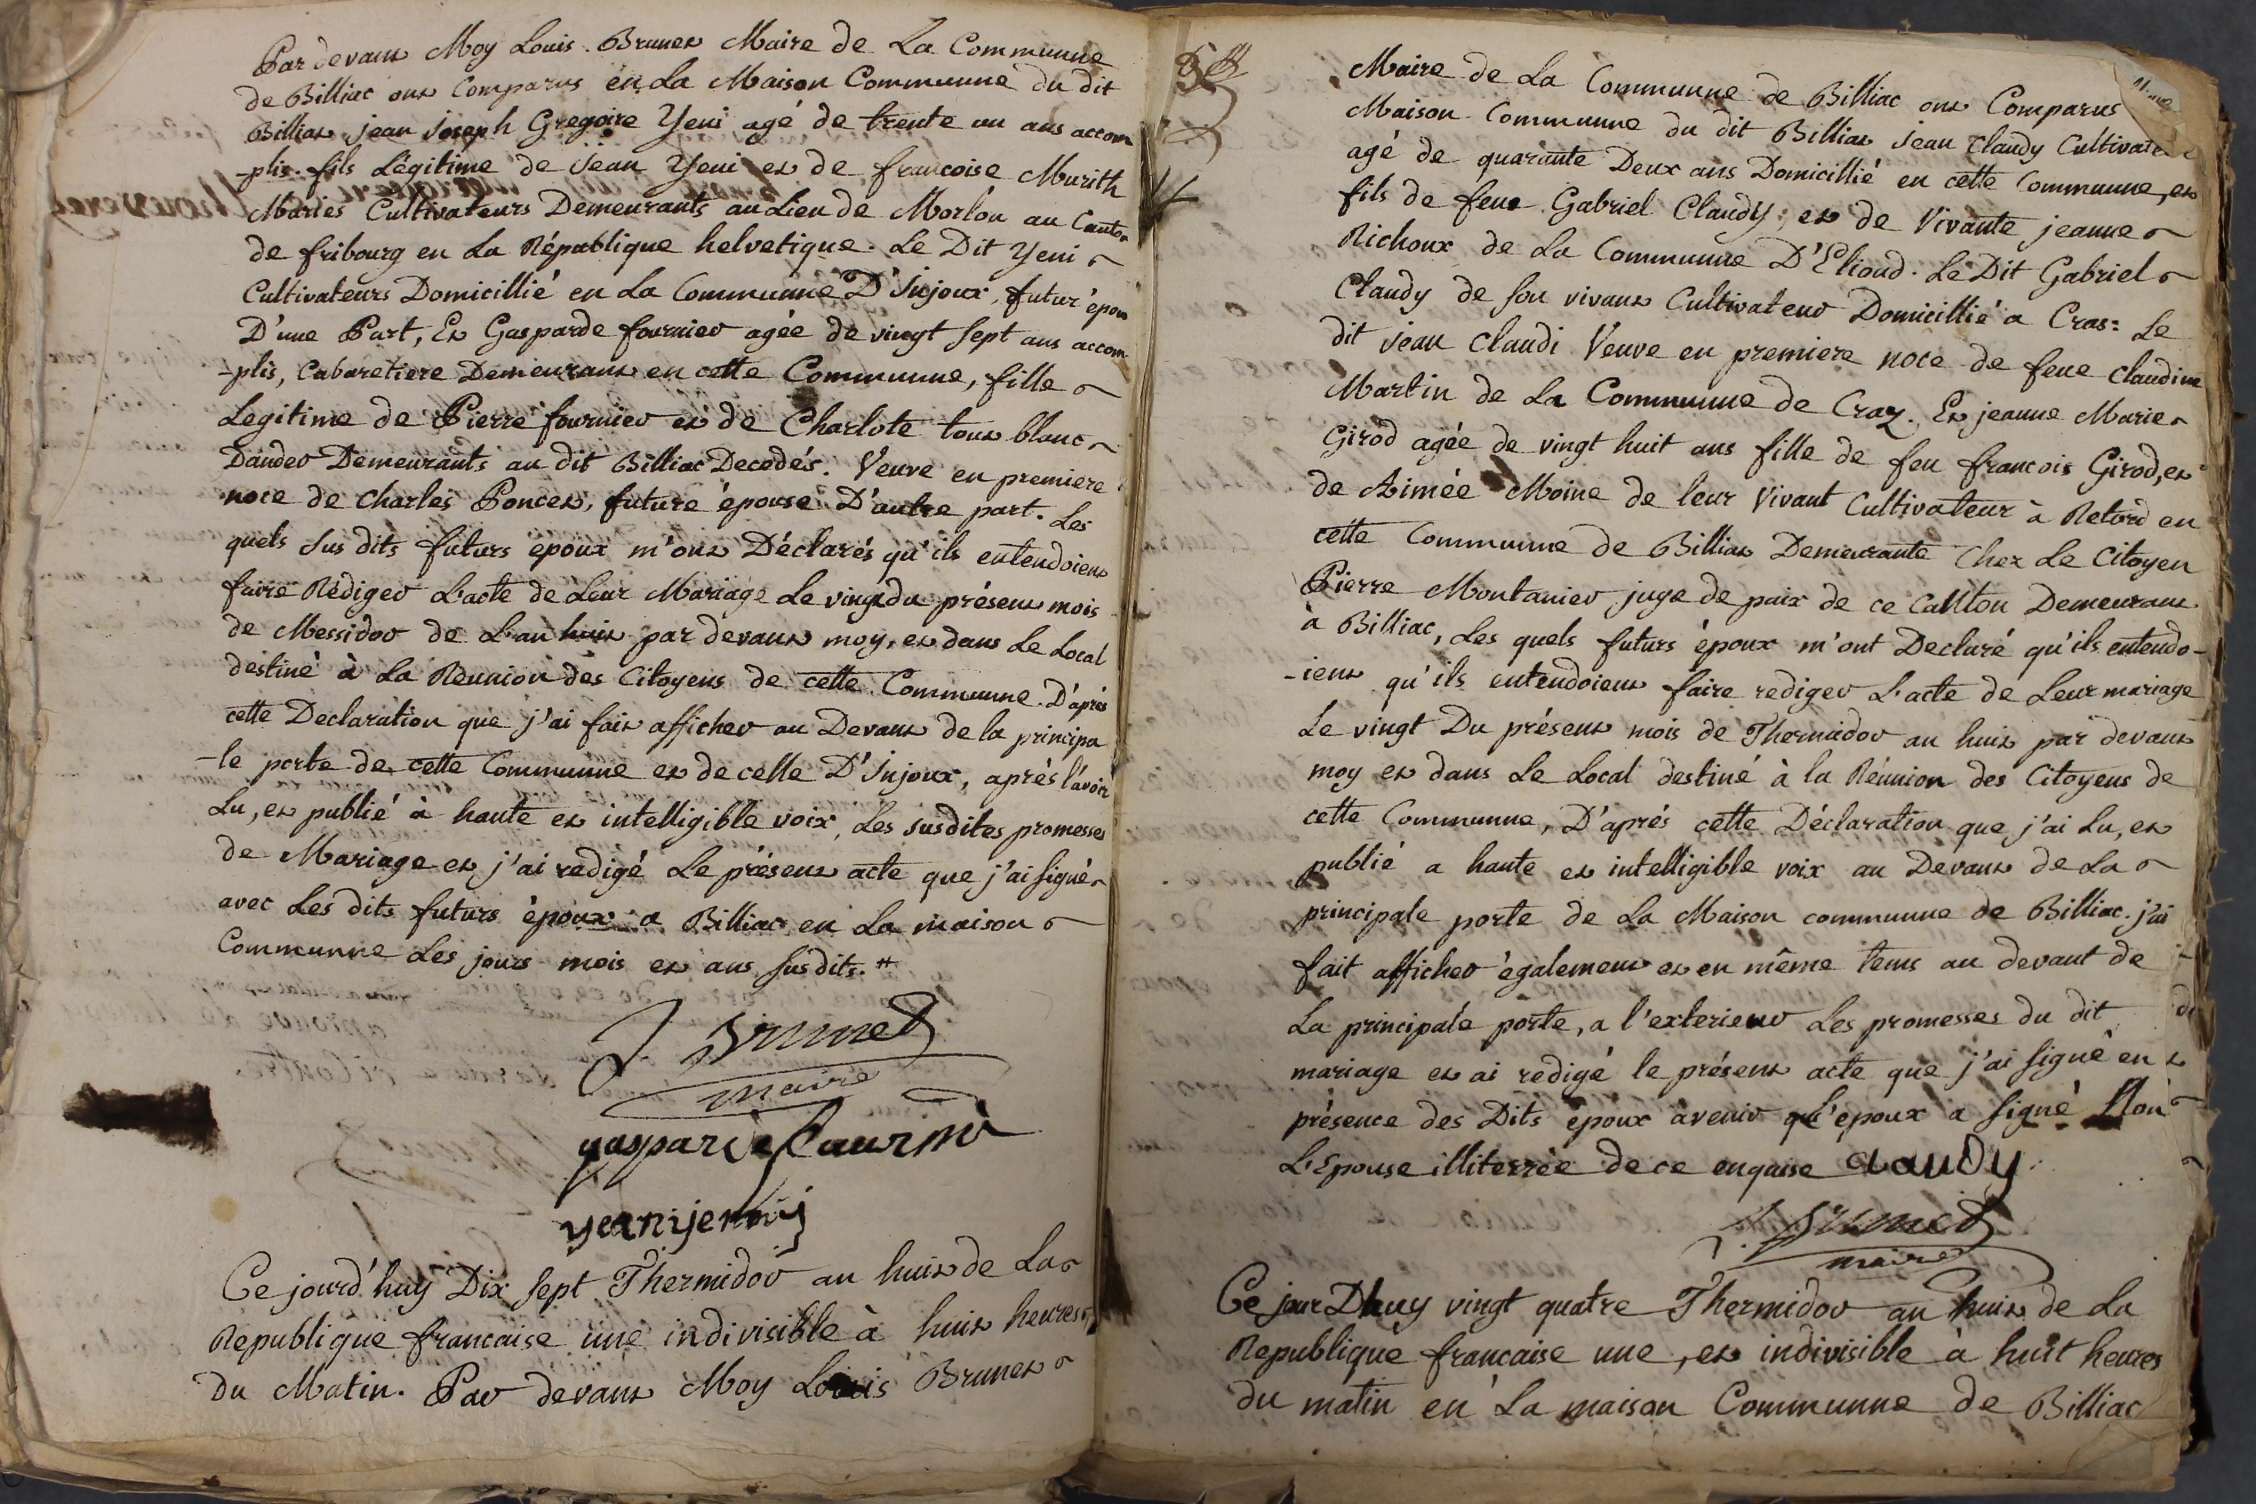 Par devant Moy Louis Brunet Maire de La Communne
de Billiac ont Comparus en La Maison Communne du dit
Billiat jean joseph Gregoire Yeni agé de trente un ans accom
-plis. fils Légitime de jean Yeni et de francoise Murith
Mariés Cultivateurs Demeurants au Lieu de Morlon au Canton
de fribourg en La République helvetique. Le Dit Yeni
Cultivateurs Domicillié en La Communne D'Injoux, futur époux
D'une Part, Et Gasparde fournier agée de vingt sept ans accom
-plis, Cabaretiere Demeurant en cette Communne, fille
Legitime de Pierre fournier et de Charlote tout blanc
Dander Demeurants au dit Billiac Decedés. Veuve en premiere
noce de Charles Poncet, future épouse D'autre part. Les
quels sus dits futurs epoux m'ont Déclarés qu'ils entendoient
faire Rédiger L'acte de Leur Mariage Le vingt du présent mois
de Messidor de L'an huit par devant moy, et dans Le Local
destiné à La Reunion des Citoyens de cette Communne. D'aprés
cette Declaration que j'ai fait afficher au Devant de la principa
-le porte de cette Communne et de celle D'Injoux, après l'avoir
Lu, et publié à haute et intelligible voix, Les susdites promesses
de Mariage et j'ai redigé Le présent acte que j'ai signé
avec Les dits futurs époux a Billiac en La maison
Communne Les jours mois et ans susdits.
L. Brunet
maire
gasparde faurnié
Ce jourd'huy Dix sept Thermidor an huit de La
Republique francaise une indivisible à huit heures
du Matin. Par devant Moy Louis Brunet
Maire de La Communne de Billiac ont Comparus
Maison Communne du dit Billiat jean Claudy Cultivate
agé de quarante Deux ans Domicillié en cette Communne, et
fils de feue Gabriel Claudy; et de Vivante jeanne
Richoux de La Communne D'Eliond. Le Dit Gabriel
Claudy de son vivant Cultivateur Domicillié a Cras: Le
dit jean Claudi Veuve en premiere noce de feue Claudine
Martin de La Communne de Craz. Et jeanne Marie
Girod agée de vingt huit ans fille de feu francois Girod, et
de Aimée Moine de leur Vivant Cultivateur à Retord en
cette Communne de Billiat Demeurante Chez Le Citoyen
Pierre Montanier juge de paix de ce Canton Demeurant
à Billiac, Les quels futurs époux m'ont Declaré qu'ils entendo-
-ient qu'ils entendoient faire rediger L'acte de Leur mariage
Le vingt Du présent mois de Thermidor an huit par devant
moy et dans Le Local destiné à la Réunion des Citoyens de
cette Communne, D'aprés cette Déclaration que j'ai Lu, et
publié a haute et intelligible voix au Devant de La
principale porte de La Maison communne de Billiac. j'ai
fait afficher également et en même tems au devant de
La principale porte, a l'exterieur Les promesses du dit
mariage et ai redigé le présent acte que j'ai signé en
présence des Dits époux àvenir L'epoux a signé Non
L'Epouse illiterrée de ce enquise Claudy
L. Brunet
maire
Ce jour Dhuy vingt quatre Thermidor an huit de La
Republique francaise une, et indivisible à huit heures
du matin en La maison Communne de Billiac